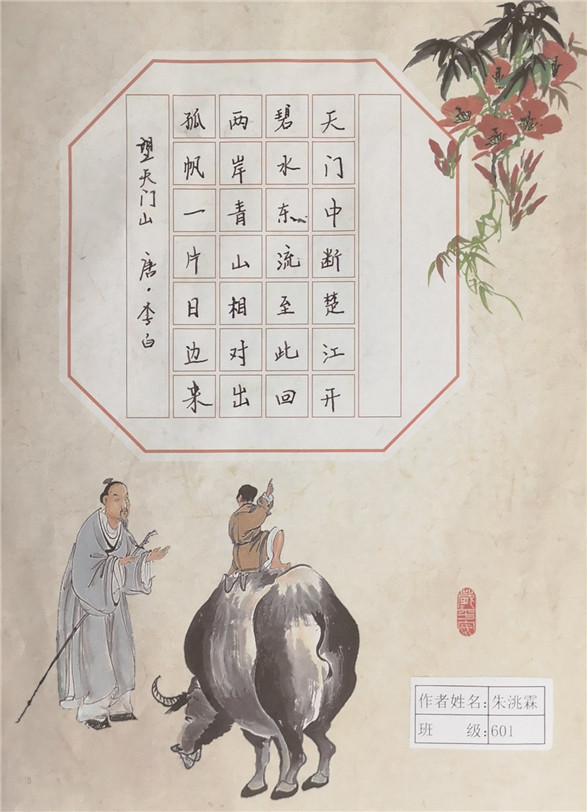 天门中断楚江开
碧水东流至此回
两岸青山相对出
孤帆一片日边来
望天门山 唐·李白
作者姓名:朱洮霖
班 级:601